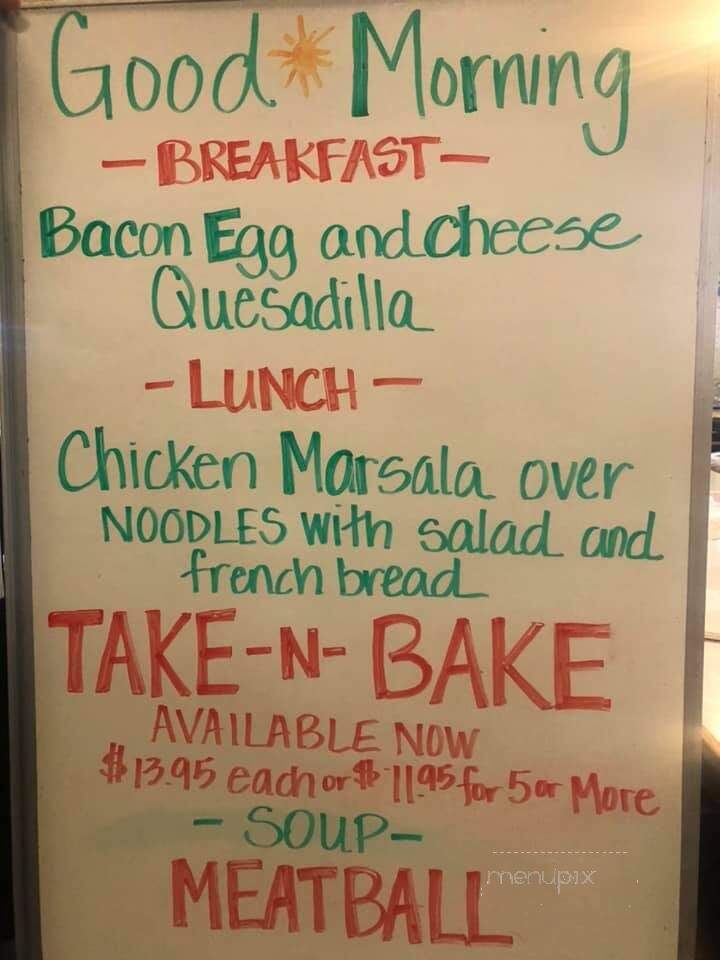 Good Morning
- BREAKFAST -
Bacon Egg and cheese
Quesadilla
- LUNCH -
Chicken Marsala over
NOODLES with salad and
french bread
TAKE-N-BAKE
AVAILABLE NOW
$13.95 each or $11.95 for 5 or More
- SOUP -
MEATBALL
menupix